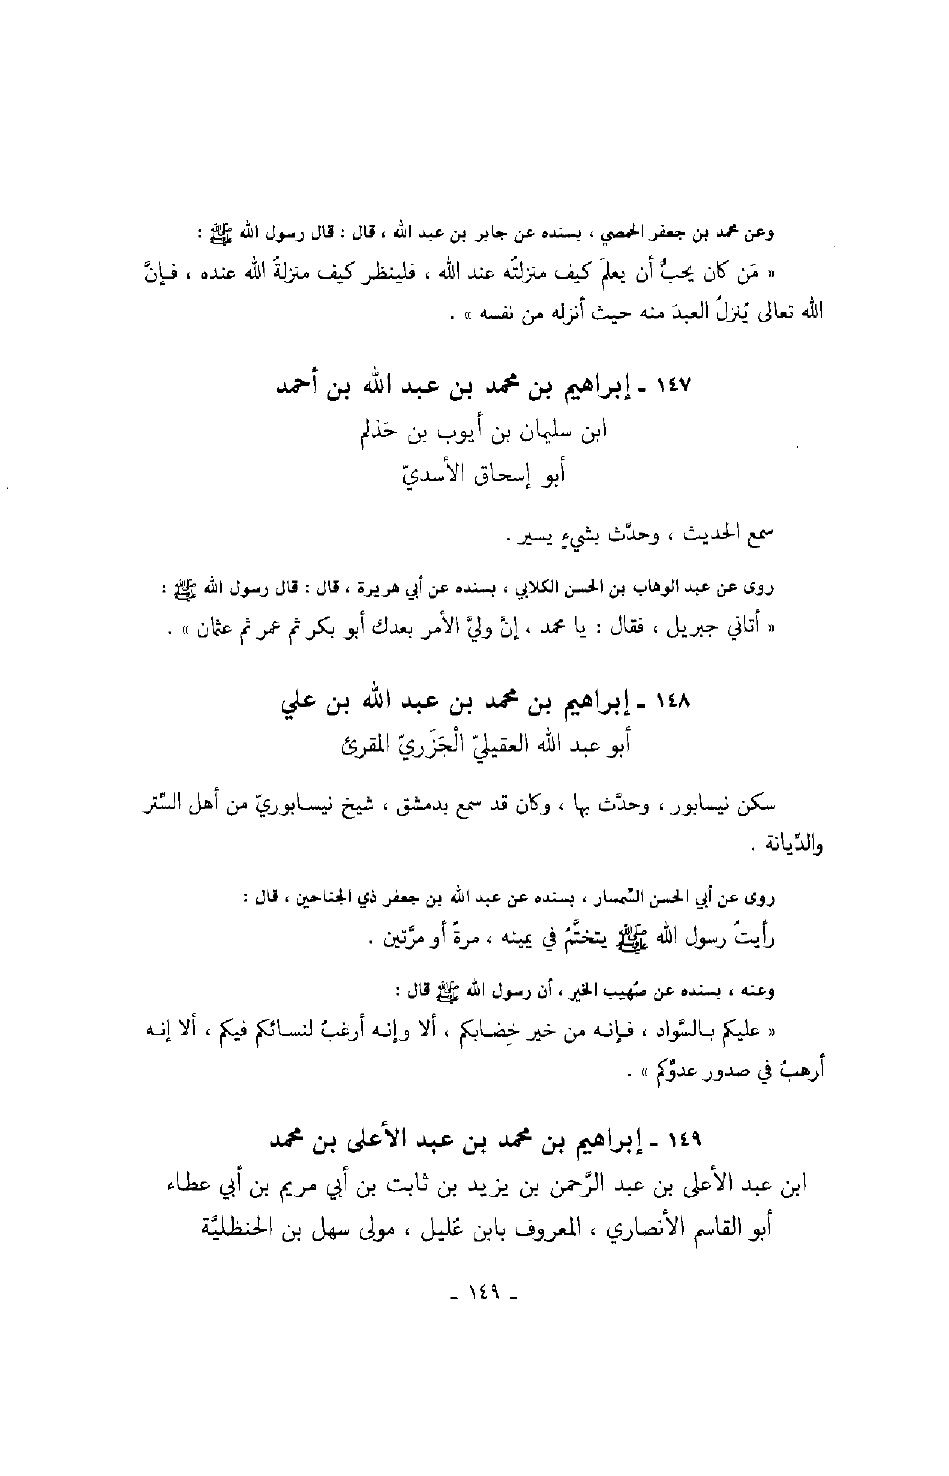 وعن محمد بن جعفر الحمصي ، بسنده عن جابر بن عبد الله ، قال : قال رسول الله ﷺ :
« مَن كان يحبُّ أن يعلَم كيف منزلتُه عند الله ، فلينظر كيف منزلةُ الله عنده ، فإنَّ
الله تعالى يُنزلُ العبدَ منه حيث أنزله من نفسه » .
١٤٧ ـ إبراهيم بن محمد بن عبد الله بن أحمد
ابن سليمان بن أيوب بن حَذلم
أبو إسحاق الأسديّ
سمع الحديث ، وحدَّث بشيءٍ يسير .
روى عن عبد الوهاب بن الحسن الكلابي ، بسنده عن أبي هريرة ، قال : قال رسول الله ﷺ :
« أتاني جبريل ، فقال : يا محمد ، إنَّ وليَّ الأمر بعدك أبو بكر ثم عمر ثم عثمان » .
١٤٨ ـ إبراهيم بن محمد بن عبد الله بن علي
أبو عبد الله العقيليّ الْجَزَريّ المقرئ
سكن نيسابور ، وحدَّث بها ، وكان قد سمع بدمشق ، شيخ نيسابوريّ من أهل السِّتر
والدِّيانة .
روى عن أبي الحسن السِّمسار ، بسنده عن عبد الله بن جعفر ذي الجناحين ، قال :
رأيتُ رسول الله ﷺ يتختَّمُ في يمينه ، مرةً أو مرَّتين .
وعنه ، بسنده عن صُهيب الخير ، أن رسول الله ﷺ قال :
« عليكم بالسَّواد ، فإنه من خير خِضابكم ، ألا وإنه أرغبُ لنسائكم فيكم ، ألا إنه
أرهبُ في صدور عدوِّكم » .
١٤٩ ـ إبراهيم بن محمد بن عبد الأعلى بن محمد
ابن عبد الأعلى بن عبد الرَّحمن بن يزيد بن ثابت بن أبي مريم بن أبي عطاء
أبو القاسم الأنصاري ، المعروف بابن عُليل ، مولى سهل بن الحنظليَّة
ـ ١٤٩ ـ